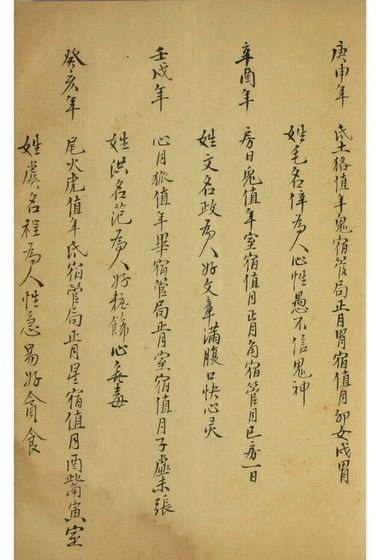 庚申年 氐土狢值年鬼宿管局正月胃宿值月卯女戍胃
姓毛名倖為人心性愚不信鬼神
辛酉年 房日兎值年室宿值月正月角宿管月巳房一日
姓文名政為人好文章滿腹口快心灵
壬戌年 心月狐值年畢宿管局正月室宿值月子虛未張
姓洪名茫為人好粧餙心無毒
癸亥年 尾火虎值年氐宿管局正月星宿值月酉觜寅室
姓虞名程為人性急易好貪食